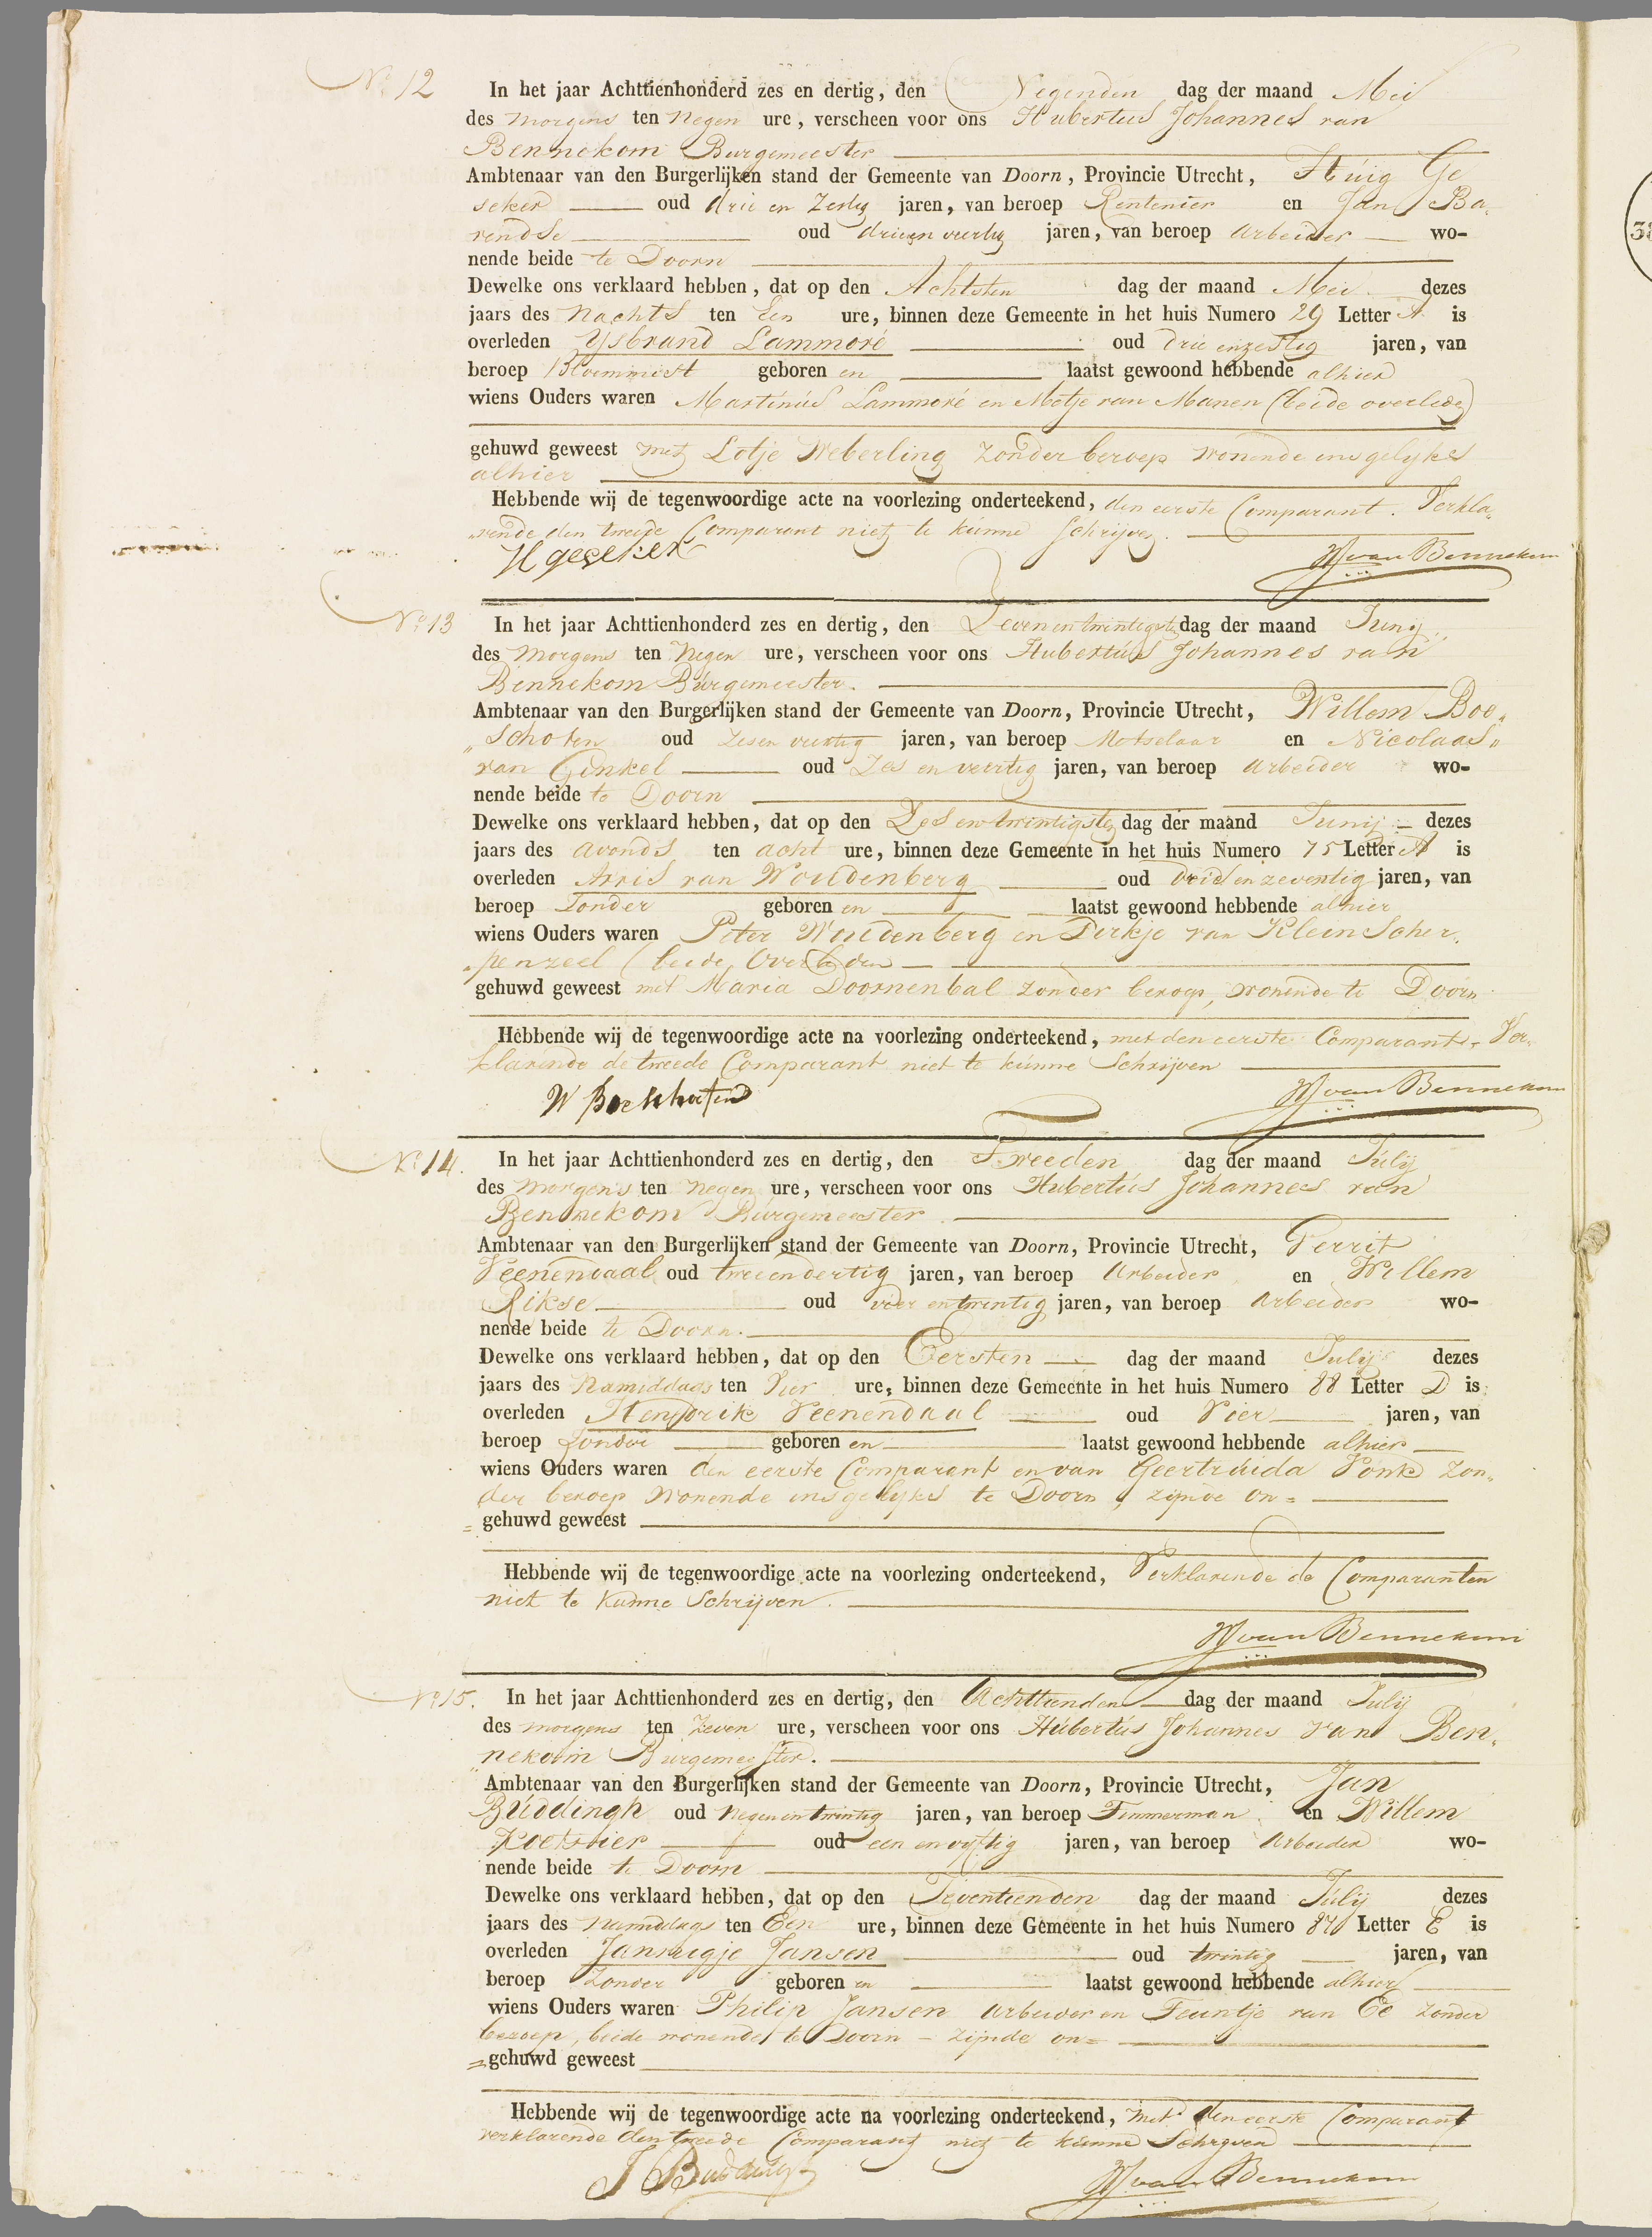 No 12
In het jaar Achttienhonderd zes en dertig, den Negenden dag der maand Mei
des morgens ten negen ure, verscheen voor ons Hubertus Johannes van
Bennekom Burgemeester
Ambtenaar van den Burgerlijken stand der Gemeente van Doorn, Provincie Utrecht, Huig Ge
seker oud drie en Zestig jaren, van beroep Rentenier en Jan Ba-
rendse oud drieen veertig jaren, van beroep Arbeider wo-
nende beide te Doorn
Dewelke ons verklaard hebben, dat op den Achtsten dag der maand Mei dezes
jaars des Nachts ten Een ure, binnen deze Gemeente in het huis Numero 29 Letter A is
overleden Ysbrand Lammoré oud drie enzestig jaren, van
beroep Bloemmist geboren en laatst gewoond hebbende alhier
wiens Ouders waren Martinus Lammoré en Metje van Manen (beide overleden)
gehuwd geweest met Lotje Weberling Zonder beroep wonende insgelyks
alhier
Hebbende wij de tegenwoordige acte na voorlezing onderteekend, den eerste Comparant. Verkla-
rende den tweede Comparant niet te kunne Schrijven.
H geseker HJ van Bennekom
No 13
In het jaar Achttienhonderd zes en dertig, den Zevenentwintigste dag der maand Junij
des Morgens ten Negen ure, verscheen voor ons Hubertus Johannes van
Bennekom Burgemeester.
Ambtenaar van den Burgerlijken stand der Gemeente van Doorn, Provincie Utrecht, Willem Boo-
schoten oud Zesen veertig jaren, van beroep Metselaar en Nicolaas
van Ginkel oud Zes en veertig jaren, van beroep Arbeider wo-
nende beide te Doorn
Dewelke ons verklaard hebben, dat op den Zes en twintigsten dag der maand Junij dezes
jaars des avonds ten acht ure, binnen deze Gemeente in het huis Numero 75 Letter A is
overleden Arris van Woudenberg oud Drie en zeventig jaren, van
beroep Zonder geboren en laatst gewoond hebbende alhier
wiens Ouders waren Peter Woudenberg en Dirkje van Kleen Scher-
penzeel (beide Overleden
gehuwd geweest met Maria Doornenbal Zonder beroep, wonende te Doorn
Hebbende wij de tegenwoordige acte na voorlezing onderteekend, met den eerste Comparant. Ver-
klarende de tweede Comparant niet te kunne Schrijven
W HJ van Bennekom
No 14.
In het jaar Achttienhonderd zes en dertig, den Tweeden dag der maand Julij
des Morgens ten Negen ure, verscheen voor ons Hubertus Johannes van
Bennekom Burgemeester
Ambtenaar van den Burgerlijken stand der Gemeente van Doorn, Provincie Utrecht, Gerrit
Veenendaal oud tweeendertig jaren, van beroep Arbeider en Willem
Rikse oud vier entwintig jaren, van beroep Arbeider wo-
nende beide te Doorn.
Dewelke ons verklaard hebben, dat op den Eersten dag der maand Julij dezes
jaars des Namiddags ten Vier ure, binnen deze Gemeente in het huis Numero 88 Letter D is
overleden Hendrik Veenendaal oud Vier jaren, van
beroep Zonder geboren en laatst gewoond hebbende alhier
wiens Ouders waren den eerste Comparant en van Geertruida Vonk Zon-
der beroep Wonende insgelyks te Doorn, zijnde on=
= gehuwd geweest
Hebbende wij de tegenwoordige acte na voorlezing onderteekend, Verklarende de Comparanten
niet te Kunne Schrijven.
HJ van Bennekom
No 15.
In het jaar Achttienhonderd zes en dertig, den Achttienden dag der maand Julij
des morgens ten Zeven ure, verscheen voor ons Hubertus Johannes van Ben-
nekom Burgemeester.
Ambtenaar van den Burgerlijken stand der Gemeente van Doorn, Provincie Utrecht, Jan
Buddingh oud Negenentwintig jaren, van beroep Timmerman en Willem
oud een en vyftig jaren, van beroep Arbeider wo-
nende beide te Doorn
Dewelke ons verklaard hebben, dat op den Zeventienden dag der maand Julij dezes
jaars des Namiddags ten Een ure, binnen deze Gemeente in het huis Numero Letter E is
overleden Jannigje Jansen oud twintig jaren, van
beroep Zonder geboren en laatst gewoond hebbende alhier
wiens Ouders waren Philip Jansen Arbeider en Teuntje van Ee Zonder
beroep, beide wonende te Doorn - zijnde on=
= gehuwd geweest
Hebbende wij de tegenwoordige acte na voorlezing onderteekend, met den eerste Comparant
verklarende den tweede Comparant niet te kunne Schrijven
J Buddingh HJ van Bennekom